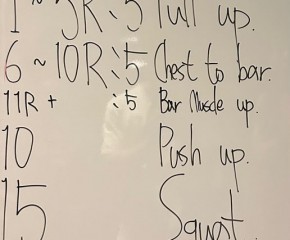 1 ~ 5R : 5 Pull up.
6 ~ 10R : 5 Chest to bar.
11R + : 5 Bar Muscle up.
10 Push up.
15 Squat